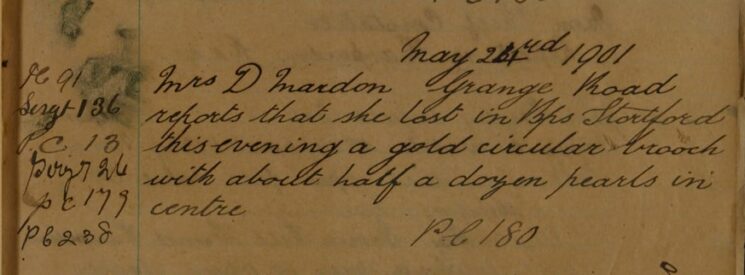 May 23rd 1901
P C 91
Sergt 136
P. C. 13
Sergt 26
P C 179
P C 238
Mrs D Mardon Grange Road
reports that she lost in Bps Stortford
this evening a gold circular brooch
with about half a dozen pearls in
centre
P C 180